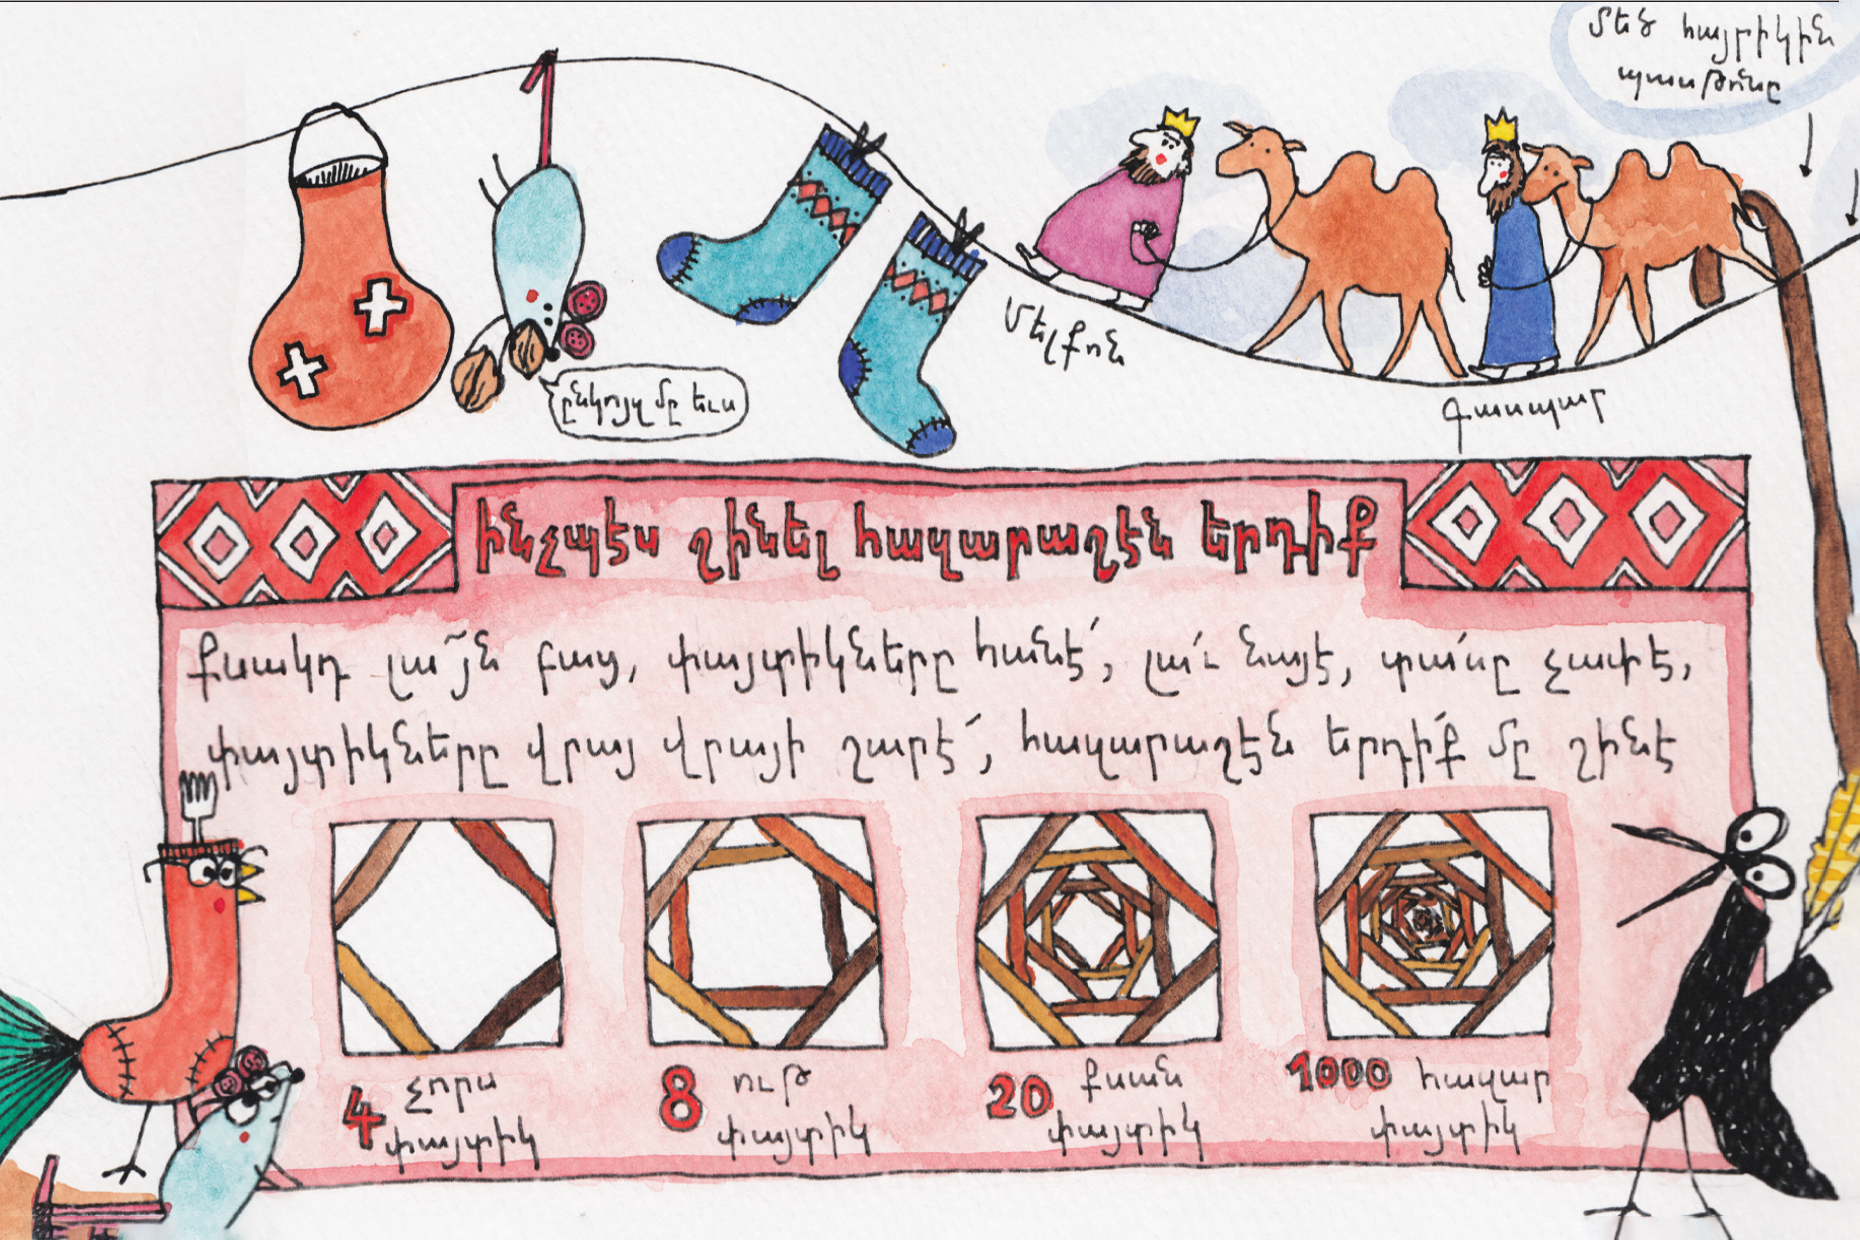 մեծ հայրիկին
պաս թոնը
Մելքոն
Գասպար
ընկոյզ մը եւս
ինչպէս շինել հազարաշէն երդիք
քսակդ լա՜յն բաց, փայտիկները հանէ՛, լա՛ւ նայէ, տա՛սը չափէ,
փայտիկները վրայ վրայի շարէ՛, հազարաշէն երդի՛ք մը շինէ
4 չորս
փայտիկ
8 ութ
փայտիկ
20 քսան
փայտիկ
1000 հազար
փայտիկ